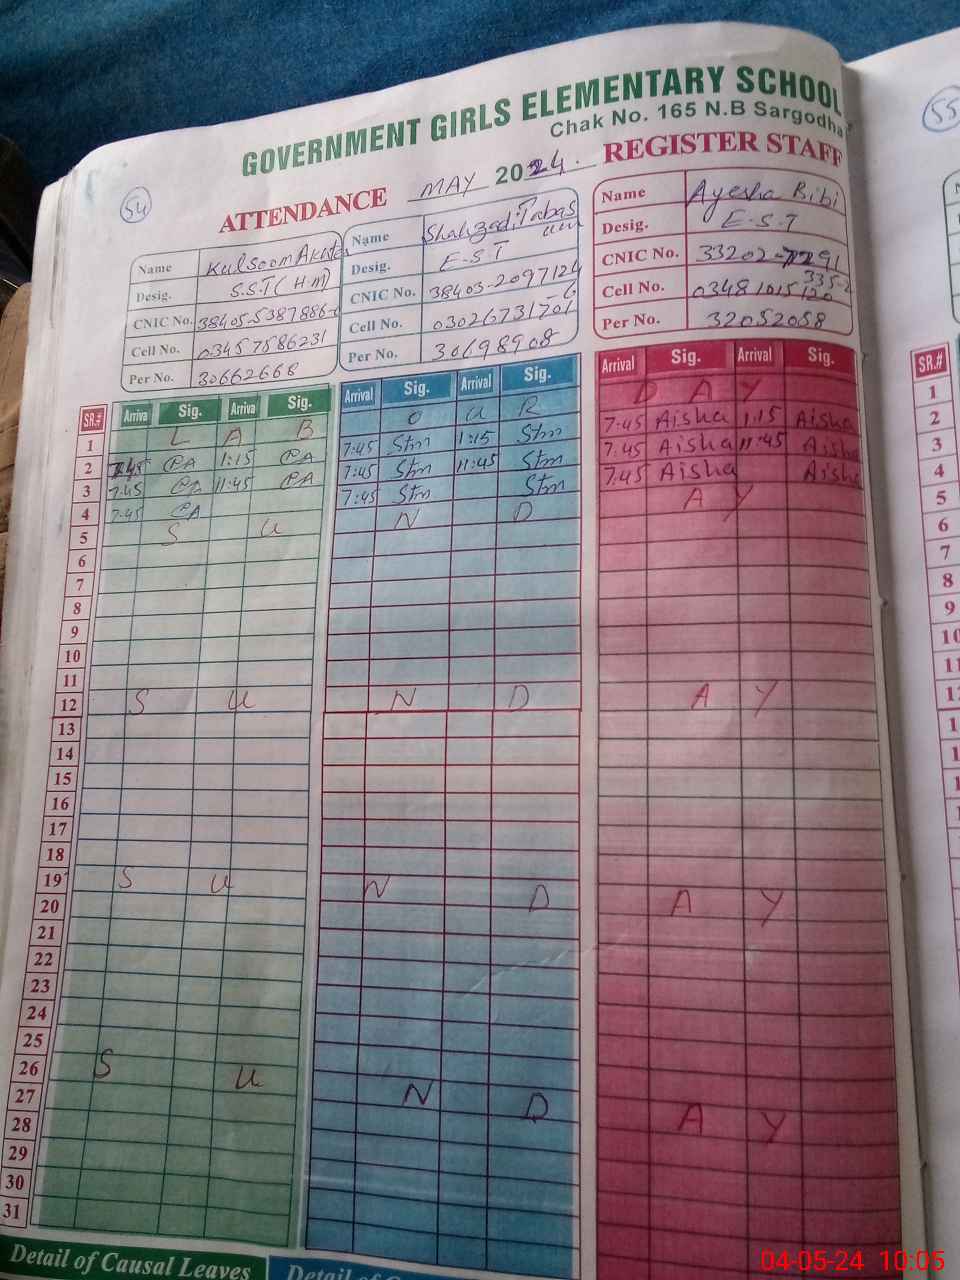 GOVERNMENT GIRLS ELEMENTARY SCHOOL
Chak No. 165 N.B Sargodha
54
55
ATTENDANCE MAY 2024. REGISTER STAFF
Name Kulsoom Akhter
Desig. S.S.T (HM)
CNIC No. 38405-5387886-
Cell No. 03457586231
Per No. 30662668
Name Shahzadi
Desig. E-S-T
CNIC No. 38403-2097124-6
Cell No. 03026731701
Per No. 30698908
Name Ayesha Bibi
Desig. E-S-T
CNIC No. 33202-
Cell No. 03481015120
Per No. 32052058
SR.# Arriva Sig. Arriva Sig. Arrival Sig. Arrival Sig. Arrival Sig. Arrival Sig. SR.#
1 L A B O U R D A Y 1
2 7:45 CA 1:15 CA 7:45 Stm 1:15 Stm 7:45 Aisha 1:15 Aisha 2
3 7:45 CA 11:45 CA 7:45 Stm 11:45 Stm 7:45 Aisha 11:45 Aisha 3
4 7:45 CA 7:45 Stm Stm 7:45 Aisha Aisha 4
5 S U N D A Y 5
6 6
7 7
8 8
9 9
10 10
11 11
12 S U N D A Y 12
13
14
15
16
17
18
19 S U N D A Y
20
21
22
23
24
25
26 S U N D A Y
27
28
29
30
31
Detail of Causal Leaves Detail of
04-05-24 10:05